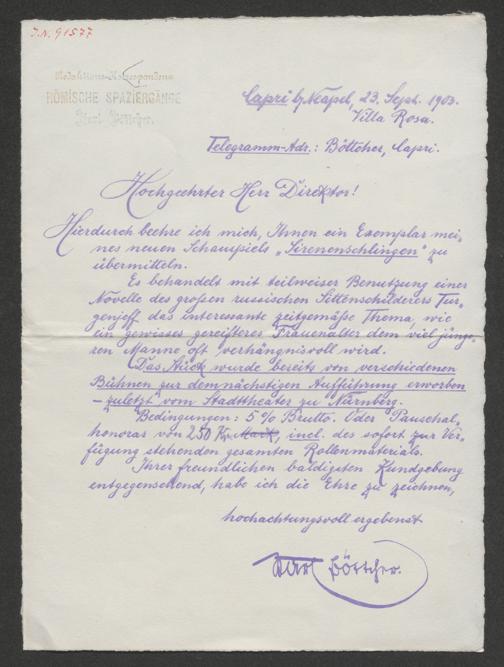 J.N. 91577
Redaktions-Korrespondenz
RÖMISCHE SPAZIERGÄNGE
Karl Böttcher.
Capri b/Neapel, 23. Sept. 1903.
Villa Rosa.
Telegramm-Adr.: Böttcher, Capri.
Hochgeehrter Herr Direktor!
Hierdurch beehre ich mich, Ihnen ein Exemplar mei-
nes neuen Schauspiels „Sirenenschlingen" zu
übermitteln.
Es behandelt mit teilweiser Benutzung einer
Novelle des großen russischen Sittenschilderers Tur-
genjeff das interessante zeitgemäße Thema, wie
ein gewisses gereifteres Frauenalter dem viel jünge-
ren Manne oft verhängnisvoll wird.
Das Stück wurde bereits von verschiedenen
Bühnen zur demnächstigen Aufführung erworben
– zuletzt vom Stadttheater zu Nürnberg.
Bedingungen: 5% Brutto. Oder Pauschal-
honorar von 250 Kr. Mark, incl. des sofort zur Ver-
fügung stehenden gesamten Rollenmaterials.
Ihrer freundlichen baldigsten Kundgebung
entgegensehend, habe ich die Ehre zu zeichnen,
hochachtungsvoll ergebenst
Karl Böttcher.